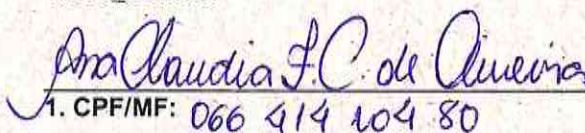 Ana Claudia F. C. de Oliveira
1. CPF/MF: 066 414 104 80